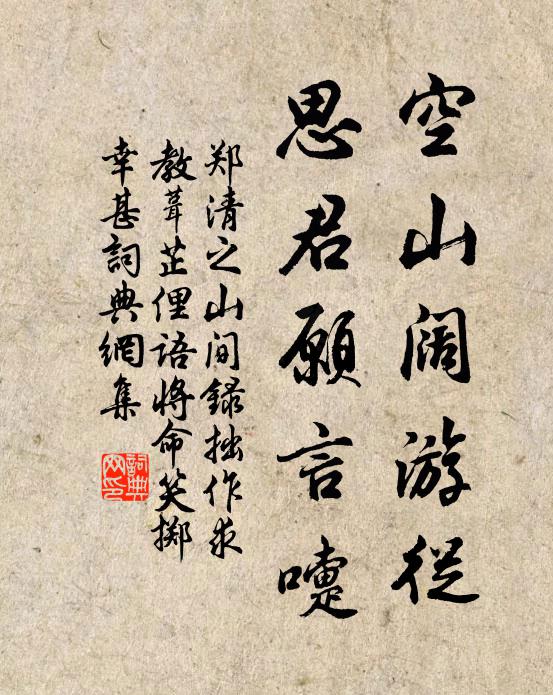 空山阔游从
思君愿言嚏
郑清之山间録拙作求
教葺芷俚语将命笑掷
幸甚詞典網集
詞典
网印